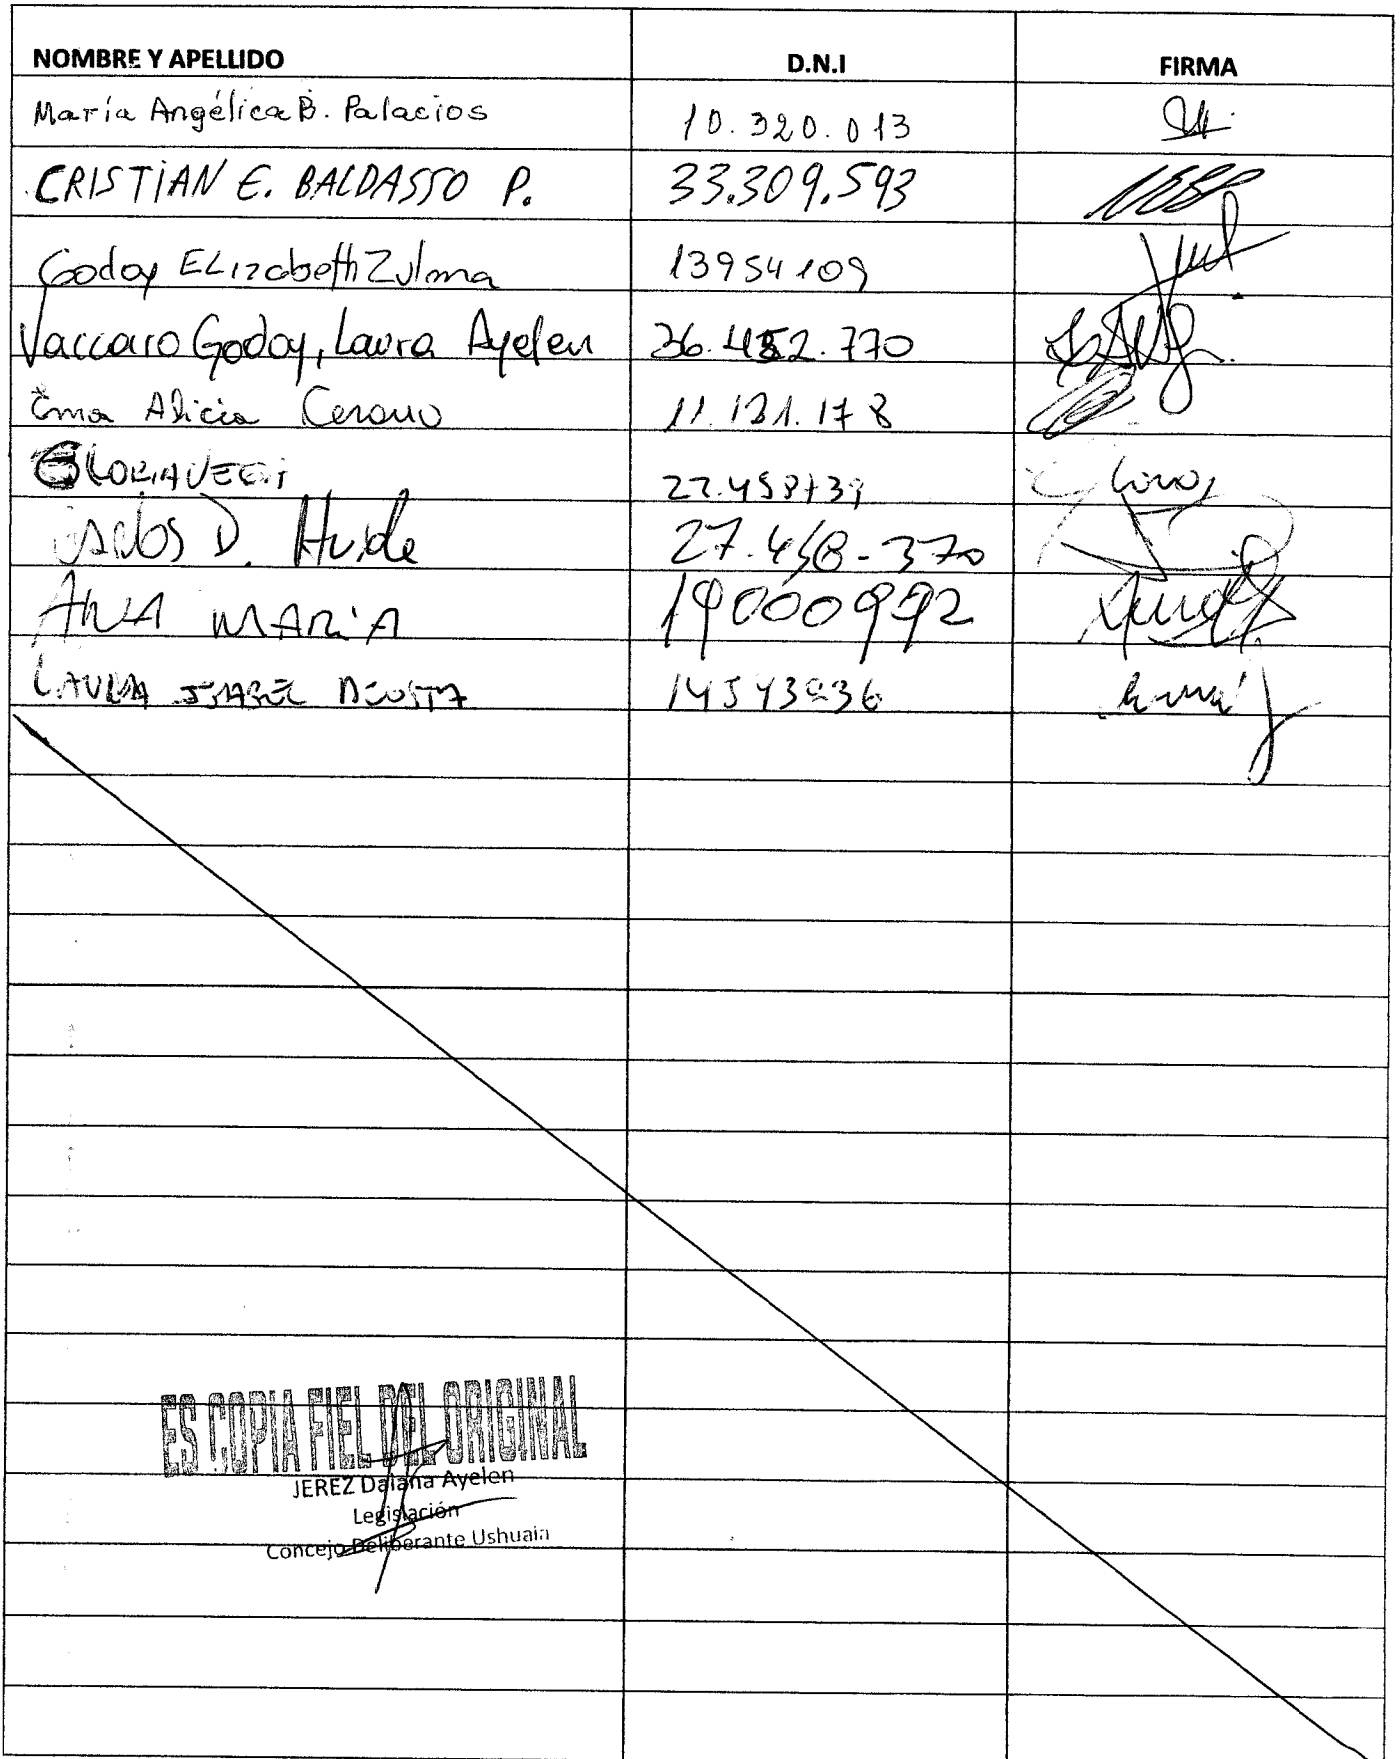 NOMBRE Y APELLIDO D.N.I FIRMA
María Angélica B. Palacios 10.320.013
CRISTIAN E. BALDASSO P. 33.309.593
Godoy ELizabeth Zulma 13954109
Vaccaro Godoy, Laura Ayelen 36.452.770
Ema Alicia 11.131.178
GLORIA
D. 27.458-370
ANA MARIA
LAURA ISABEL ACOSTA
ES COPIA FIEL DEL ORIGINAL
JEREZ Daiana Ayelen
Legislación
Concejo Deliberante Ushuaia